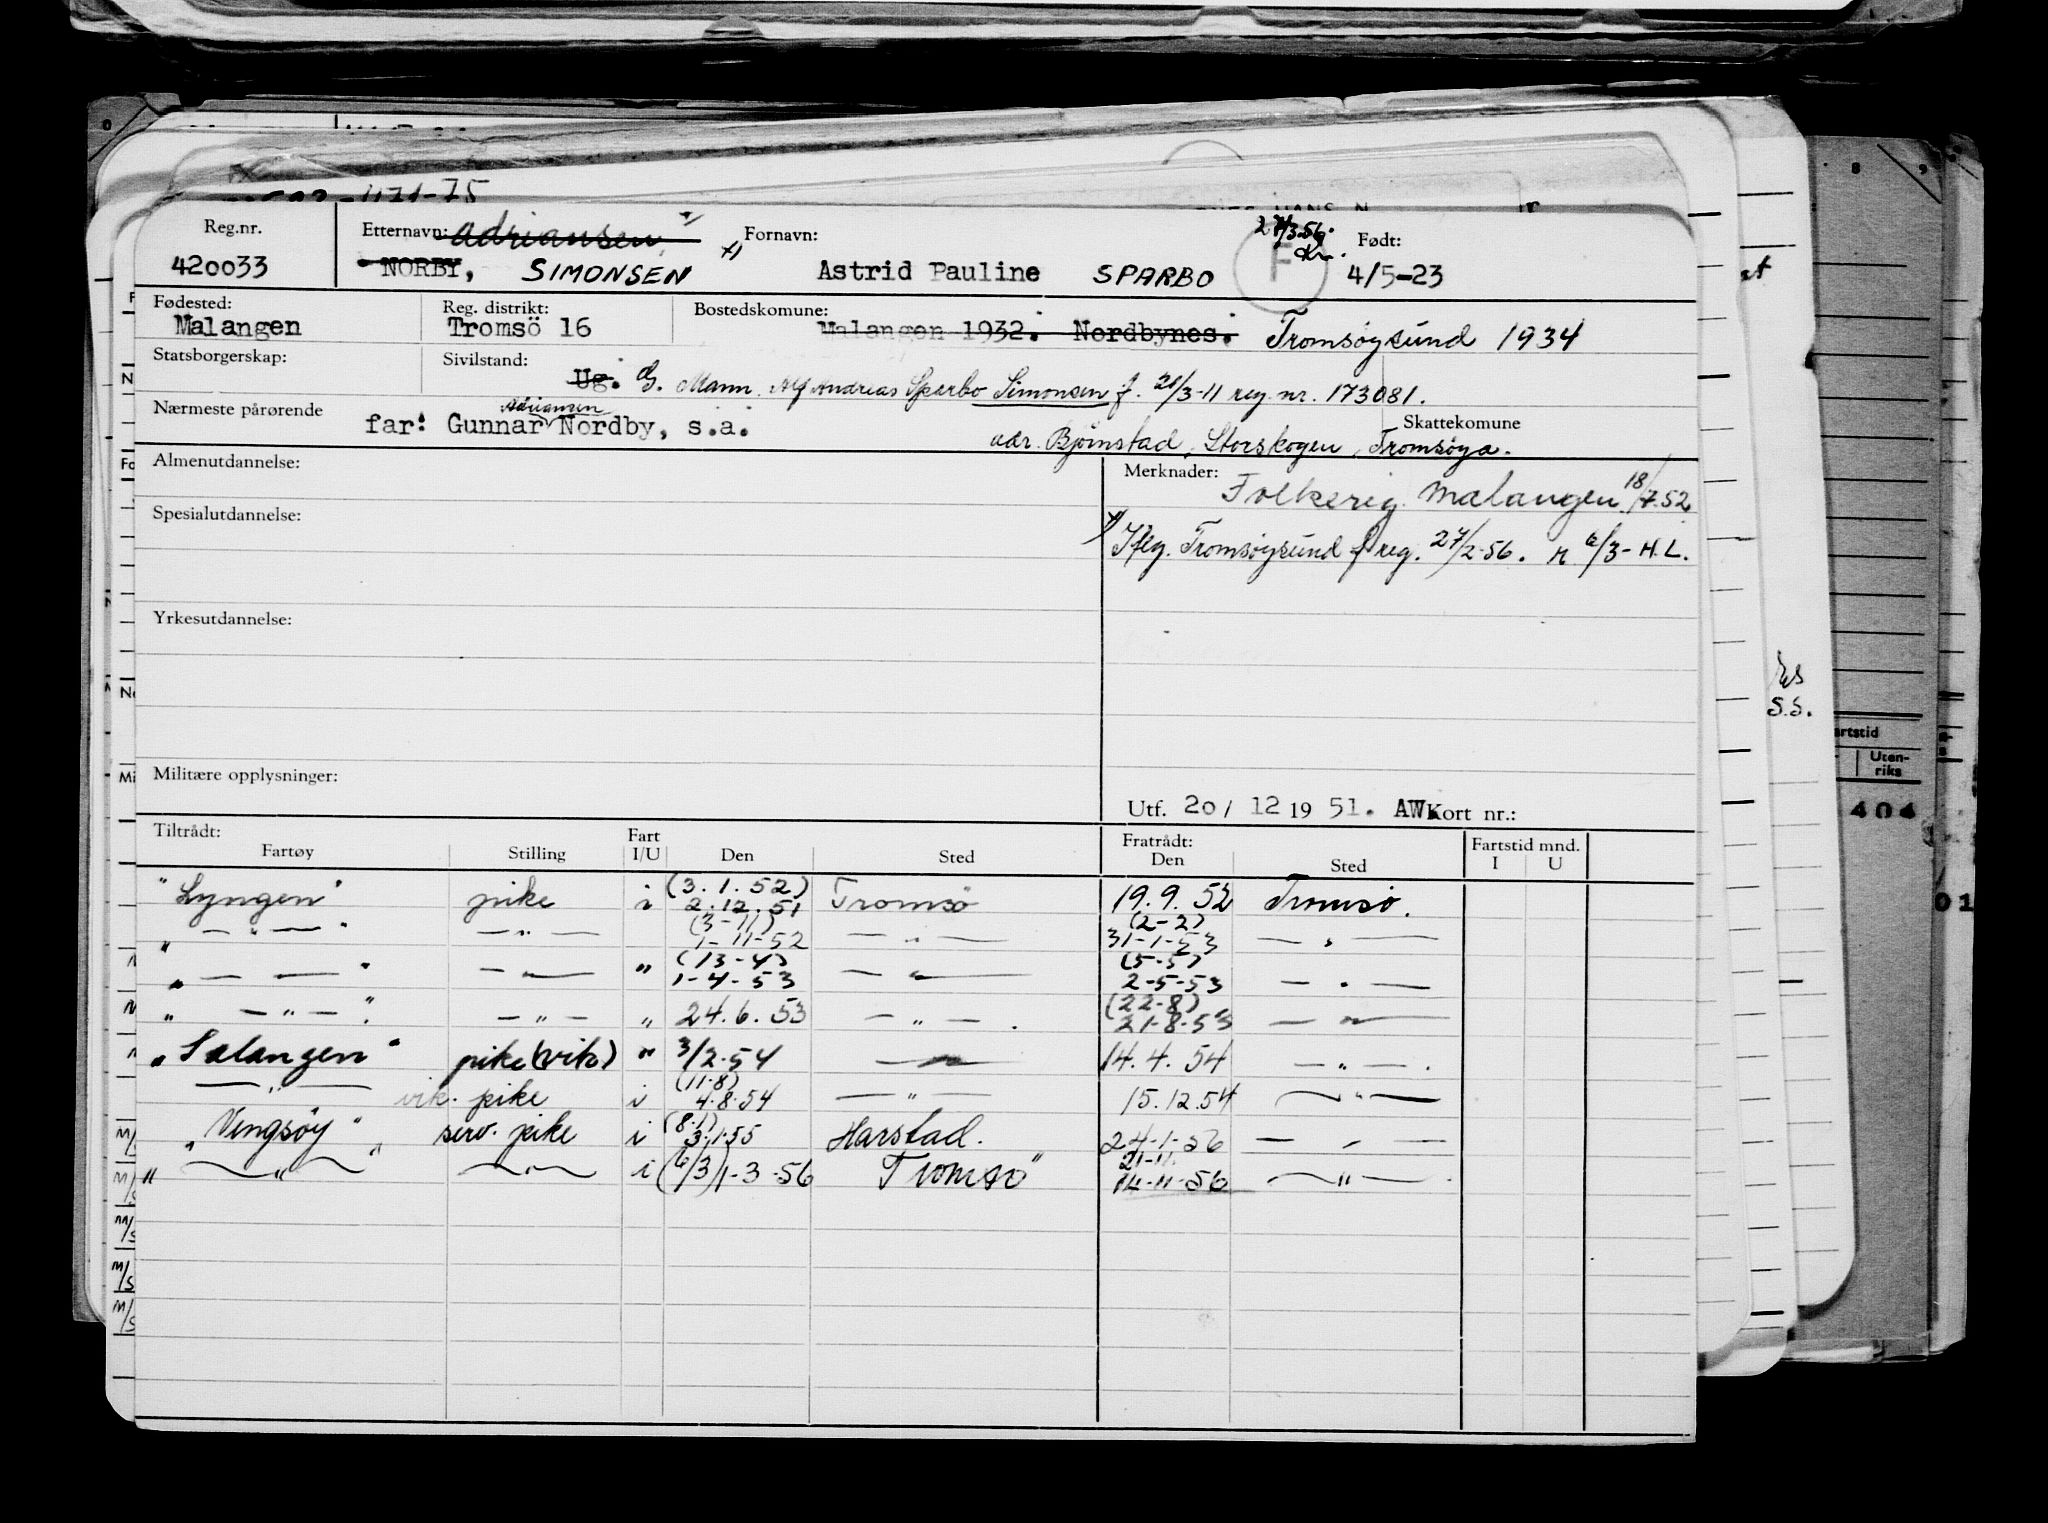 -1171-75
Reg.nr. Etternavn: Adriansen Fornavn: 27/3.56. Født:
420033 NORBY, SIMONSEN x) Astrid Pauline SPARBO F Kr. 4/5-23
Fødested: Reg. distrikt: Bostedskomune:
Malangen Tromsö 16 Malangen 1932. Nordbynes. Tromsøysund 1934
Statsborgerskap: Sivilstand:
Ug. G. Mann. Alf Andreas Sparbo Simonsen f. 21/3-11 reg. nr. 173081.
Nærmeste pårørende Adriansen Skattekomune
far: Gunnar Nordby, s.a. adr. Bjørnstad, Storskogen, Tromsøya.
Almenutdannelse: Merknader: Folkereg. Malangen 18/7.52
Spesialutdannelse: x) Iflg. Tromsøysund f reg. 27/2-56. M 6/3- H.L.
Yrkesutdannelse:
Militære opplysninger:
Utf. 20/ 12 19 51. AW Kort nr.:
Tiltrådt: Fart Fratrådt: Fartstid mnd.
Fartøy Stilling I/U Den Sted Den Sted I U
"Lyngen" pike i (3.1.52) 2.12.51 Tromsø 19.9.52 Tromsø.
" — " — " — " — (3-11) 1-11-52 — " — (2-2) 31-1-53 — " —
" — " — " — " — " (13-4) 1-4-53 — " — (5-5) 2-5-53 — " —
" — " — " — " — " 24.6.53 — " — . (22-8) 21-8-53 — " —
"Salangen" pike (vik) " 3/2-54 — " — 14.4.54 — " — .
— " — vik. pike i (11-8) 4.8.54 — " — 15.12.54 — " —
"Vengsøy" serv. pike i (8.1) 3.1.55 Harstad. 24-1-56 — " —
" — " — " — " — i (6/3) 1-3-56 Tromsø" 21-11. 14-11-56 — " — .